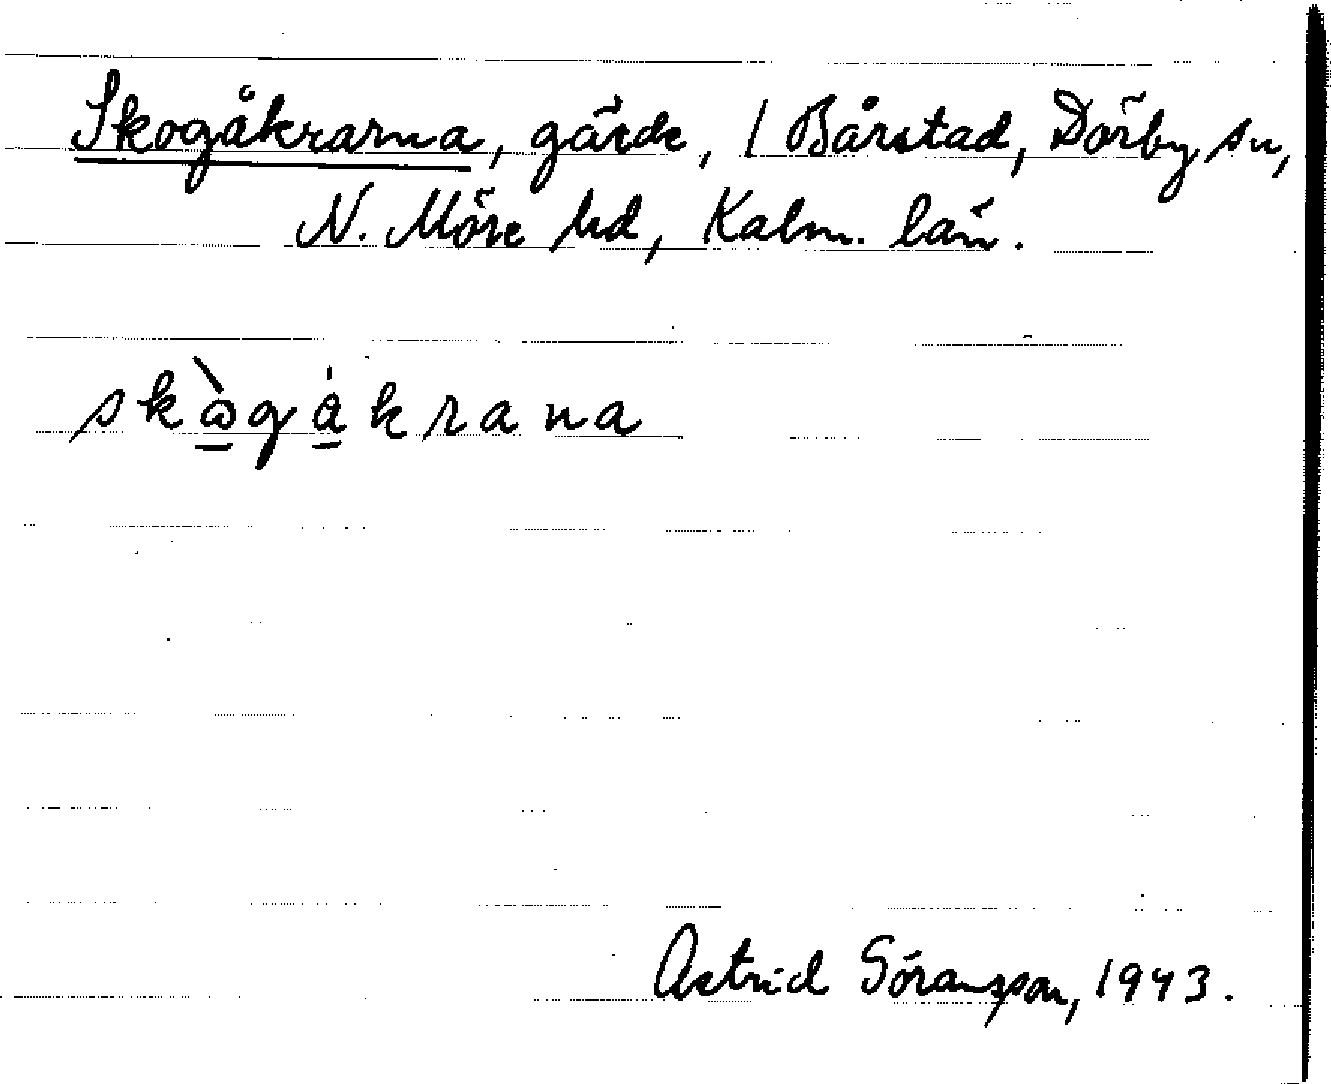 Skogåkrarna, gärde, / Bårstad, Dörby sn,
N. Möre hd, Kalm. län.
skògåkrana
Astrid Göransson, 1943.